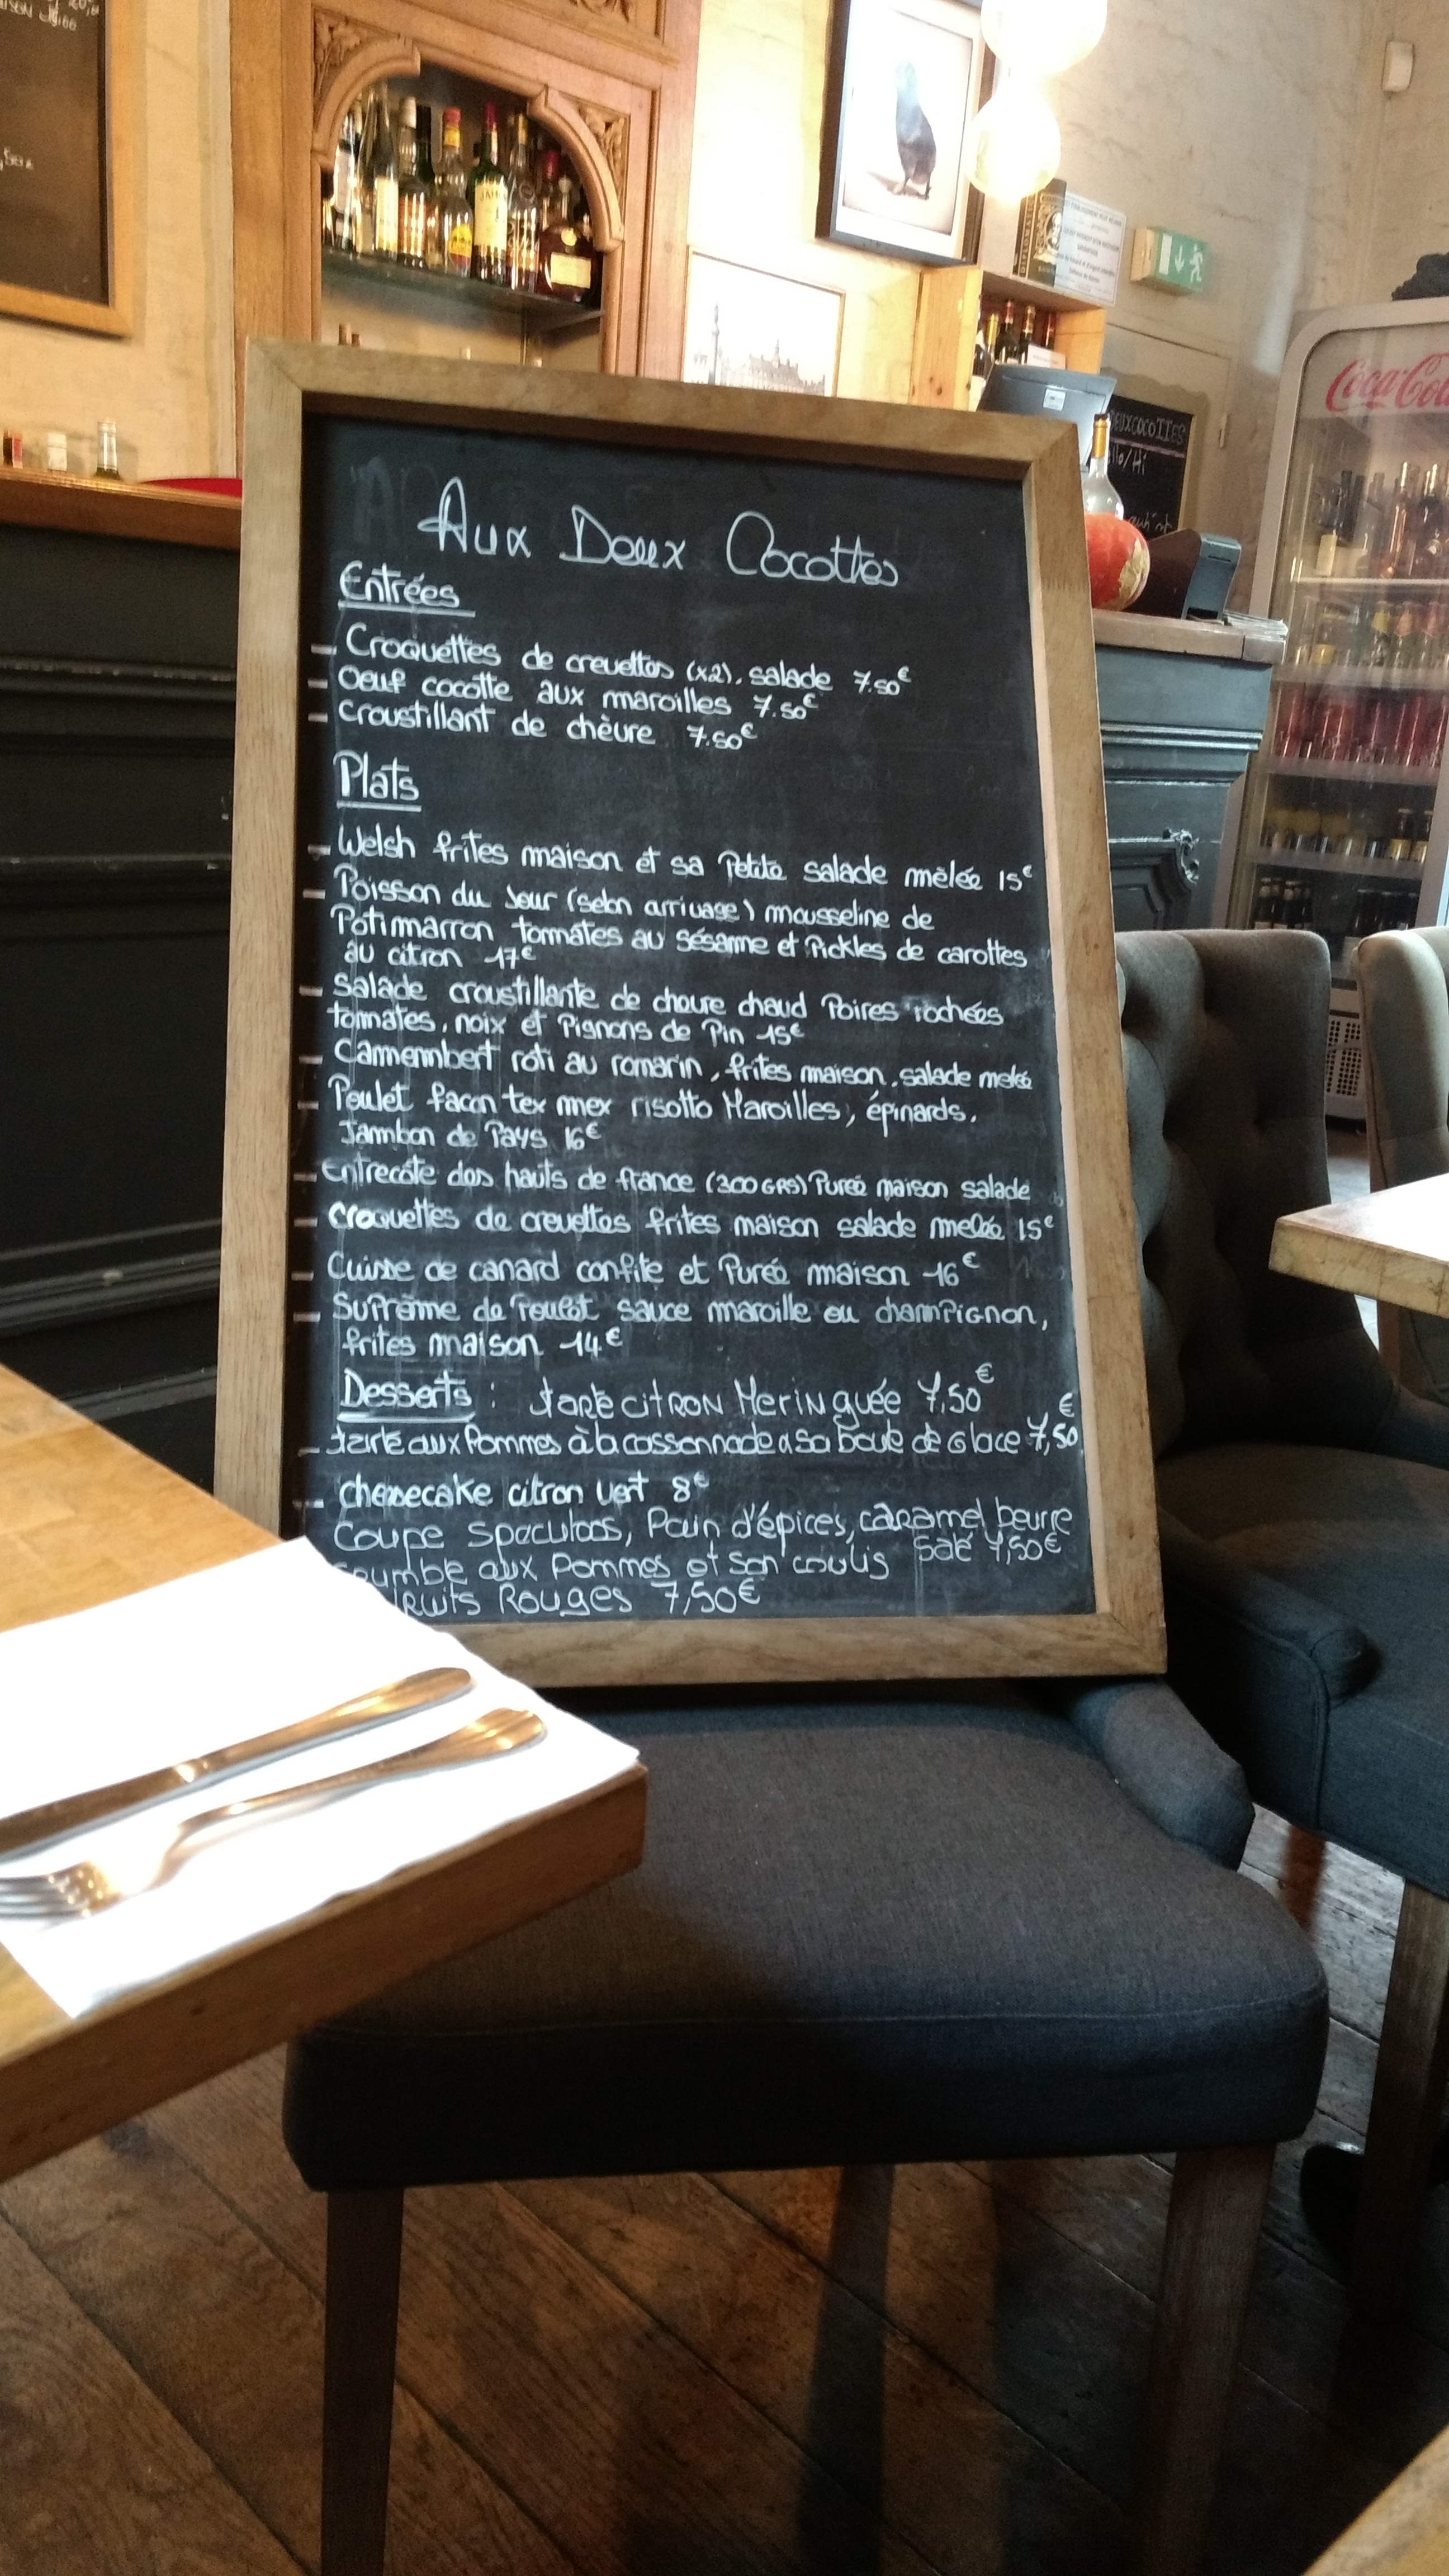 Aux Deux Cocottes
Entrées
- Croquettes de crevettes (x2), salade 7.50€
- Oeuf cocotte aux maroilles 7.50€
- Croustillant de chèvre 7.50€
Plats
- Welsh frites maison et sa Petite salade mêlée 15€
- Poisson du Jour (selon arrivage) mousseline de
Potimarron tomates au sésame et Pickles de carottes
au citron 17€
- Salade croustillante de chevre chaud Poires Pochées
tomates, noix et Pignons de Pin 15€
- Camembert rôti au romarin, frites maison, salade melée
- Poulet facon tex mex risotto Maroilles, épinards,
Jambon de Pays 16€
- Entrecôte des hauts de france (300GRS) Purée maison salade
- Croquettes de crevettes frites maison salade melée 15€
- Cuisse de canard confite et Purée maison 16€
- Suprême de Poulet sauce maroille ou champignon,
frites maison 14€
Desserts : tarte citron Meringuée 7,50€
- tarte aux Pommes à la cassonnade a sa boule de Glace 7,50€
- cheesecake citron vert 8€
Coupe Speculoos, Pain d'épices, caramel beurre
salé 7,50€
crumble aux Pommes et son coulis
fruits Rouges 7,50€
Coca-Cola